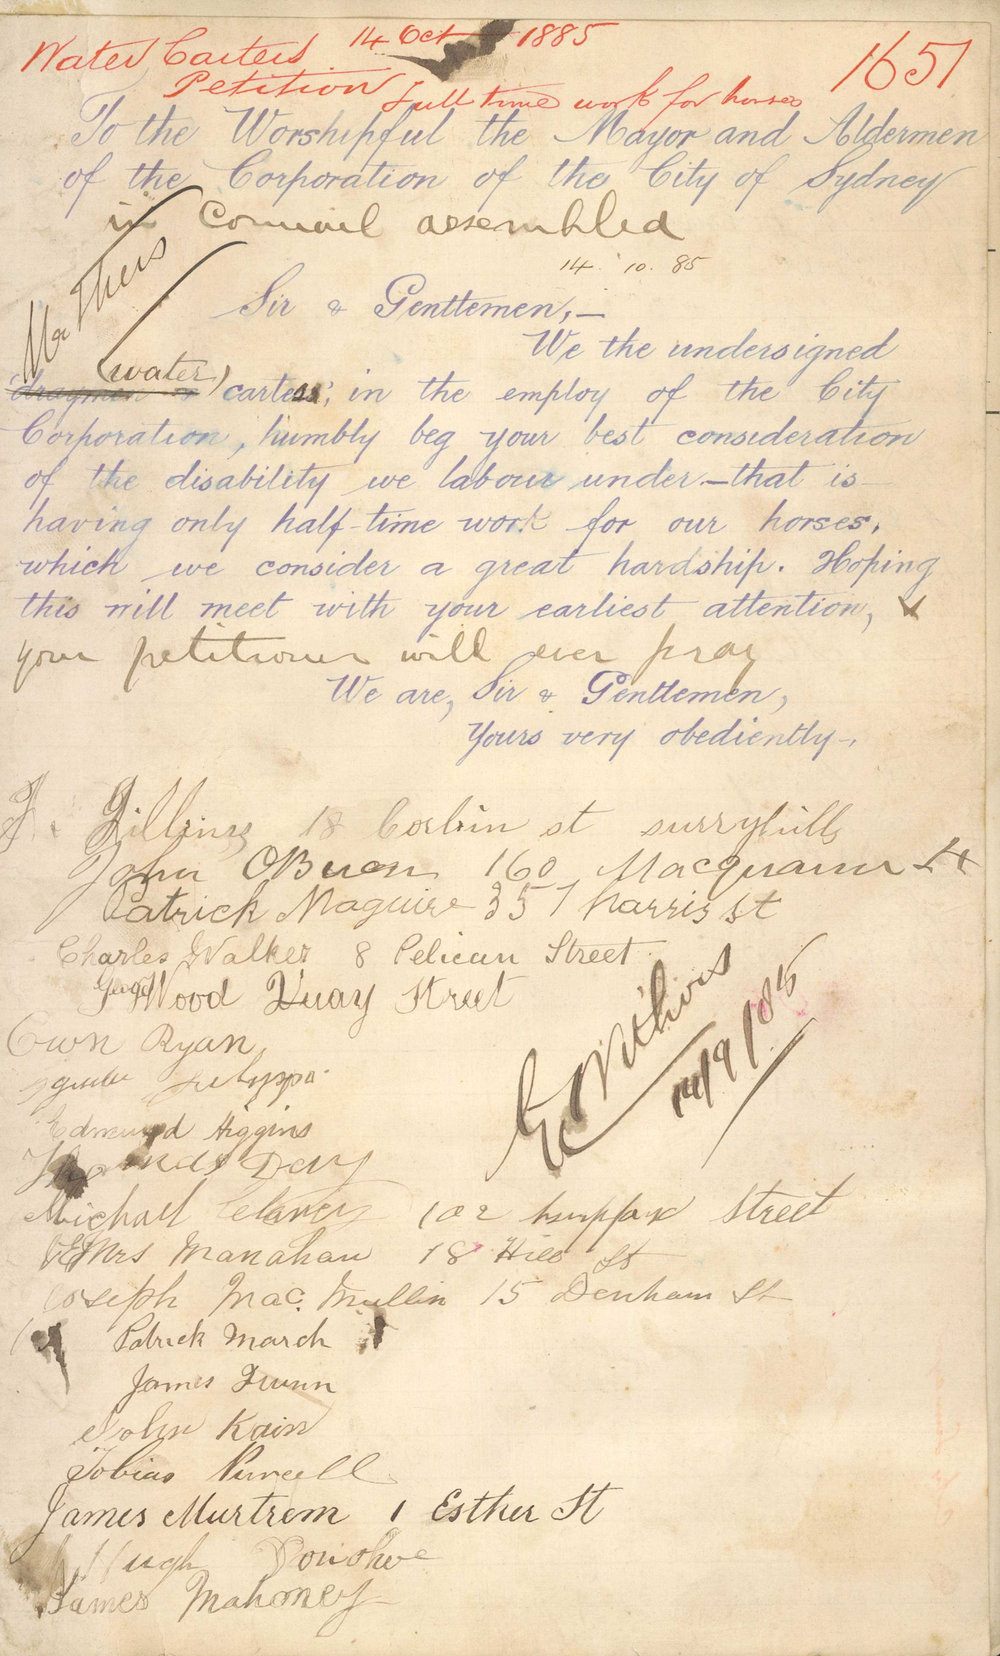 Water Carters 14 Oct 1885
1651
Petition full time work for horses
To the Worshipful the Mayor and Aldermen
of the Corporation of the City of Sydney
in Council assembled
14. 10. 85
Sir & Genttemen,—
We the undersigned
draymen (water) carters; in the employ of the City
Corporation, humbly beg your best consideration
of the disability we labour under—that is
having only half-time work for our horses,
which we consider a great hardship. Hoping
this will meet with your earliest attention, &
your petitioners will ever pray
We are, Sir & Genttemen,
Yours very obediently—,
18 st surryhills
John OBrien 160 Macquarie St
Patrick Maguire 357 harris st
Charles Walker 8 Pelican Street
Wood Quay Street
Owen Ryan
Edmund Higgins
Michall 102 Street
Manahan 18 Hill St
Joseph Mac. Mullin 15 Denham St
Patrick March
James Dunn
John Kain
Tobias Purcell
James Murtrem 1 Esther St
Hugh Donohoe
James Mahoney